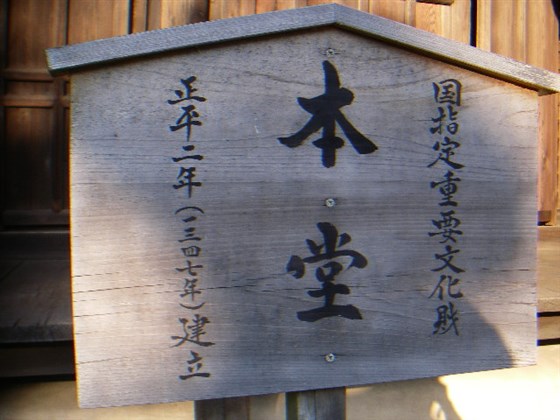 国指定重要文化財
本堂
正平二年(一三四七年)建立